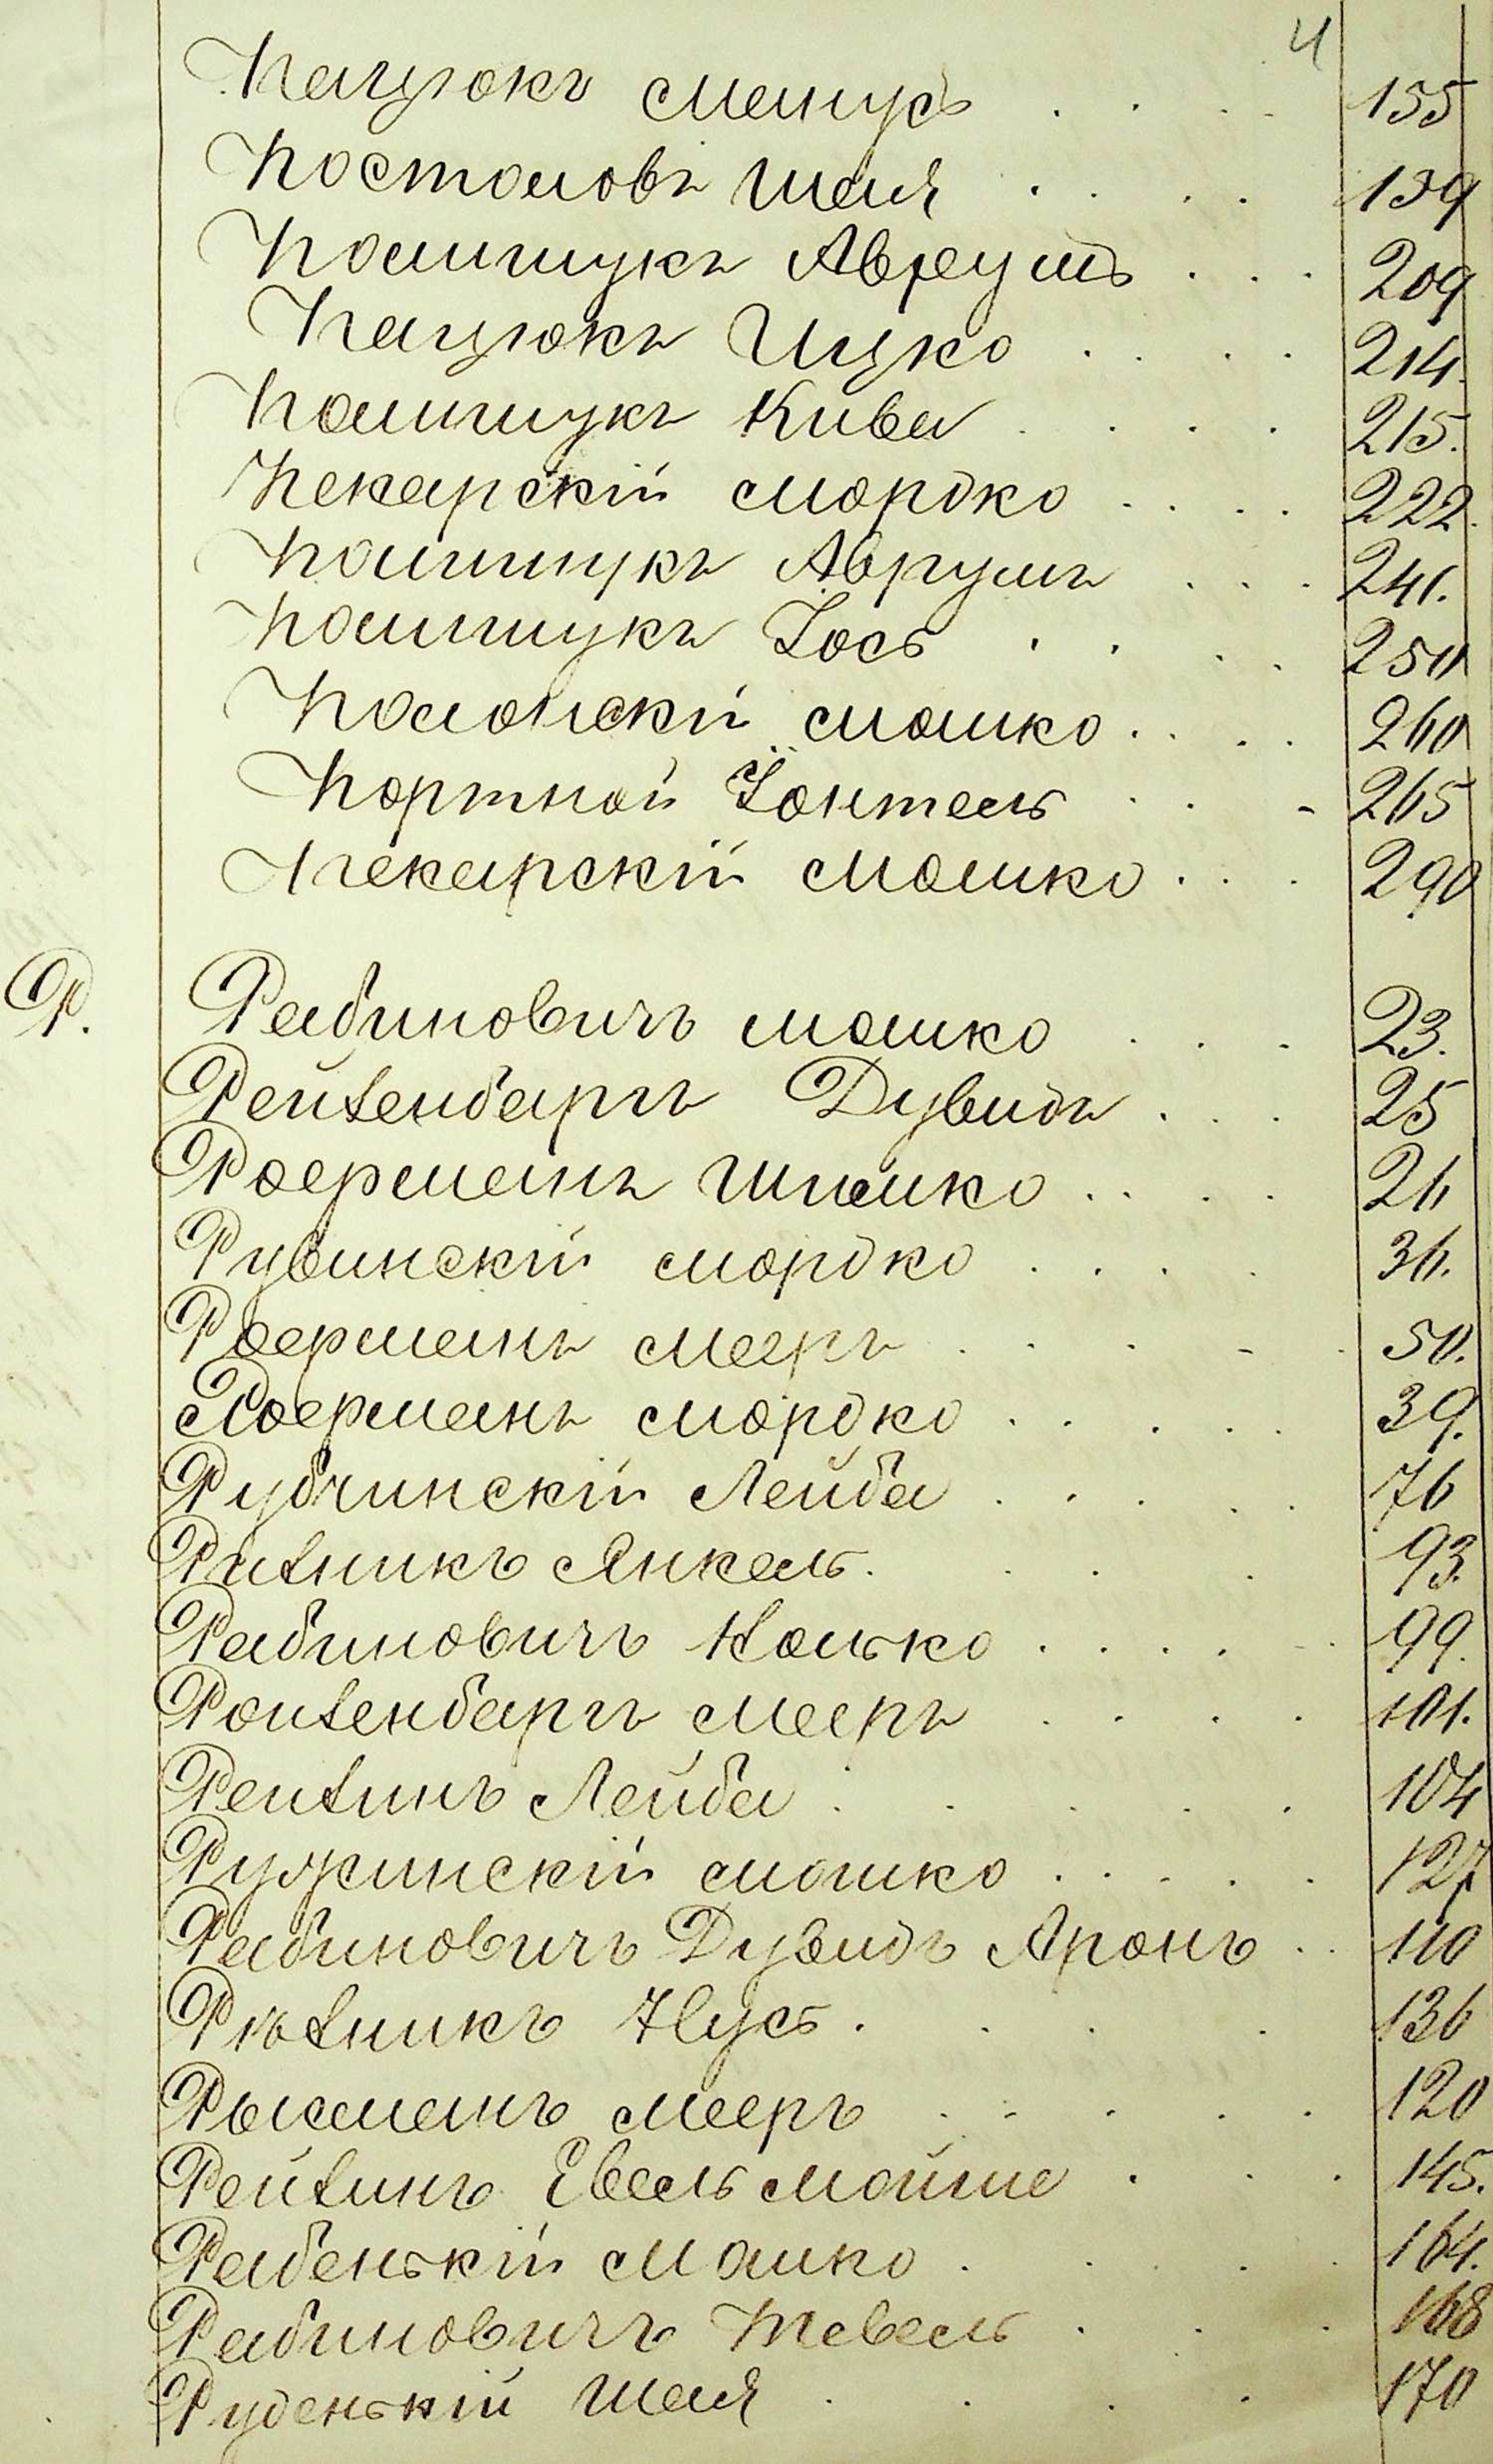 4
Пацюкъ Манусъ . . . . 155
Постоловъ Шая . . . . 139
Полищукъ Аврумъ . . . 209
Пацюкъ Ицко . . . . 214.
Полищукъ Кива . . . . 215.
Пекарскій Мордко . . . . 222.
Полищукъ Аврумъ . . . 241.
Полищукъ Іось . . . . 250
Полонскій Мошко . . . . 260
Портной Іонтель . . - 265
Пекарскій Мошко . . . 290
Р. Рабиновичъ Мошко . . . 23.
Рейзенбаргъ Дувидъ . . . 25
Роерманъ Шлёмко . . . . 26
Рувинскій Мордко . . . . 36.
Роерманъ Мееръ . . . - . 50.
Роерманъ Мордко . . . . . 39.
Рубчинскій Лейба . . . . . 76
Ризникъ Янкель . . . . 93.
Рабиновичъ Йолько . . . . 99.
Ройзенбаргъ Мееръ . . . . 101.
Рейзинъ Лейба . . . . . 104
Ружинскій Мошко . . . . . 127
Рабиновичъ Дувидъ Аронъ . . 110
Рѣзникъ Нусь . . . . 136
Мееръ . . . . . 120
Рейзинъ Евель Мойше . . . 145.
Рабенькій Мошко . . . . 164.
Рабиновичъ Тевель . . . 168
Руденькій Шая . . . . 170